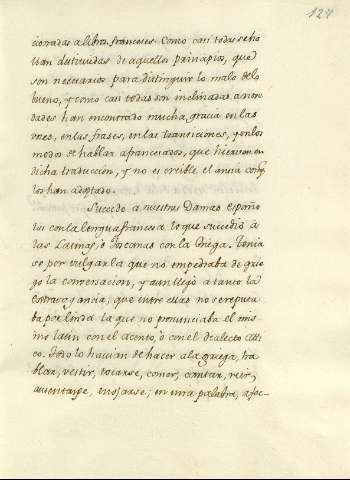 127
cionadas a libros franceses. Como casi todas se ha
llan destituidas de aquellos principios, que
son necesarios para distinguir lo malo de lo
bueno, y como casi todas son inclinadas a nove
dades han encontrado mucha gracia en las
voces, en las frases, en las transiciones, y en los
modos de hablar afrancesados, que hierven en
dicha traduccion, y no es creible el ansia conq.
los han adoptado.
Sucedió a nuestras Damas españo
las con la lengua francesa, lo que sucedió a
las Latinas, o Toscanas con la Griega. Tenia
se por vulgar la que no empedraba de grie
go la conversacion, y aun llegó a tanto la
extravagancia, que entre ellas no se reputa
ba por linda la que no pronunciaba el mis
mo latin con el acento, ó con el dialecto atti
co. Todo lo havian de hacer a la griega, ha
blar, vestir, tocarse, comer, cantar, reir,
asustarse, enojarse; en una palabra, afec-